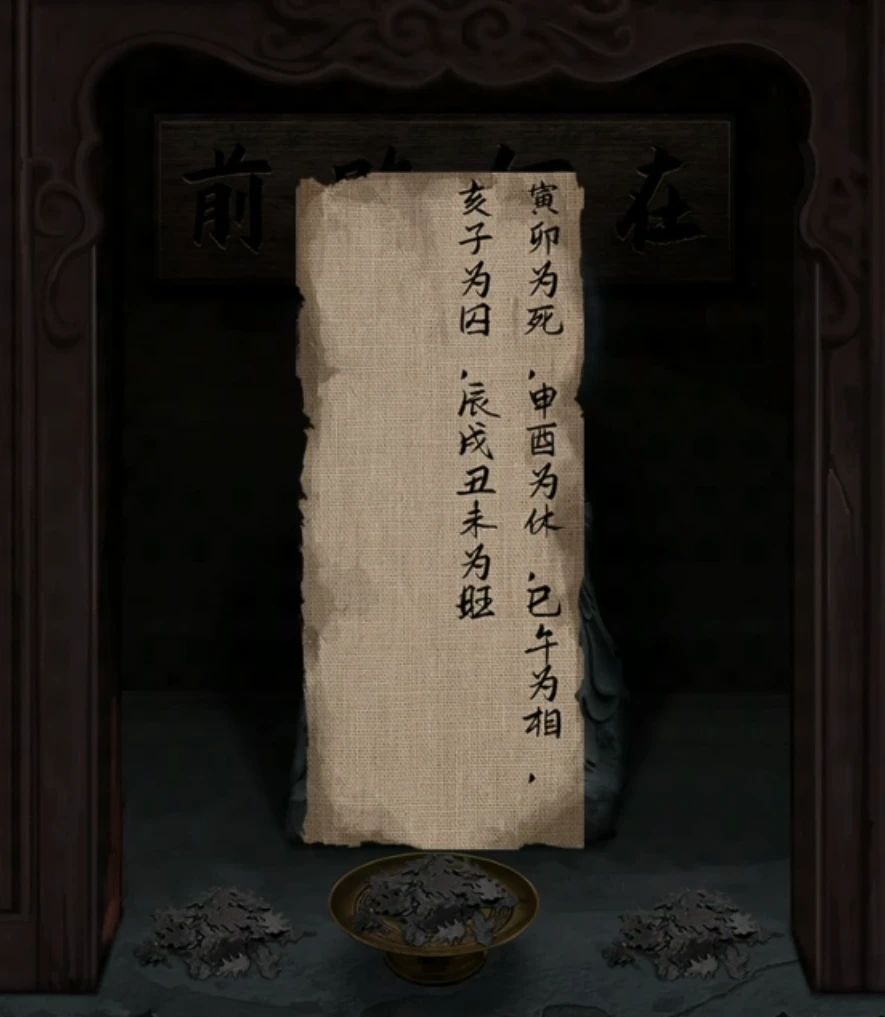 前 在
寅卯为死，申酉为休，巳午为相，
亥子为囚，辰戌丑未为旺